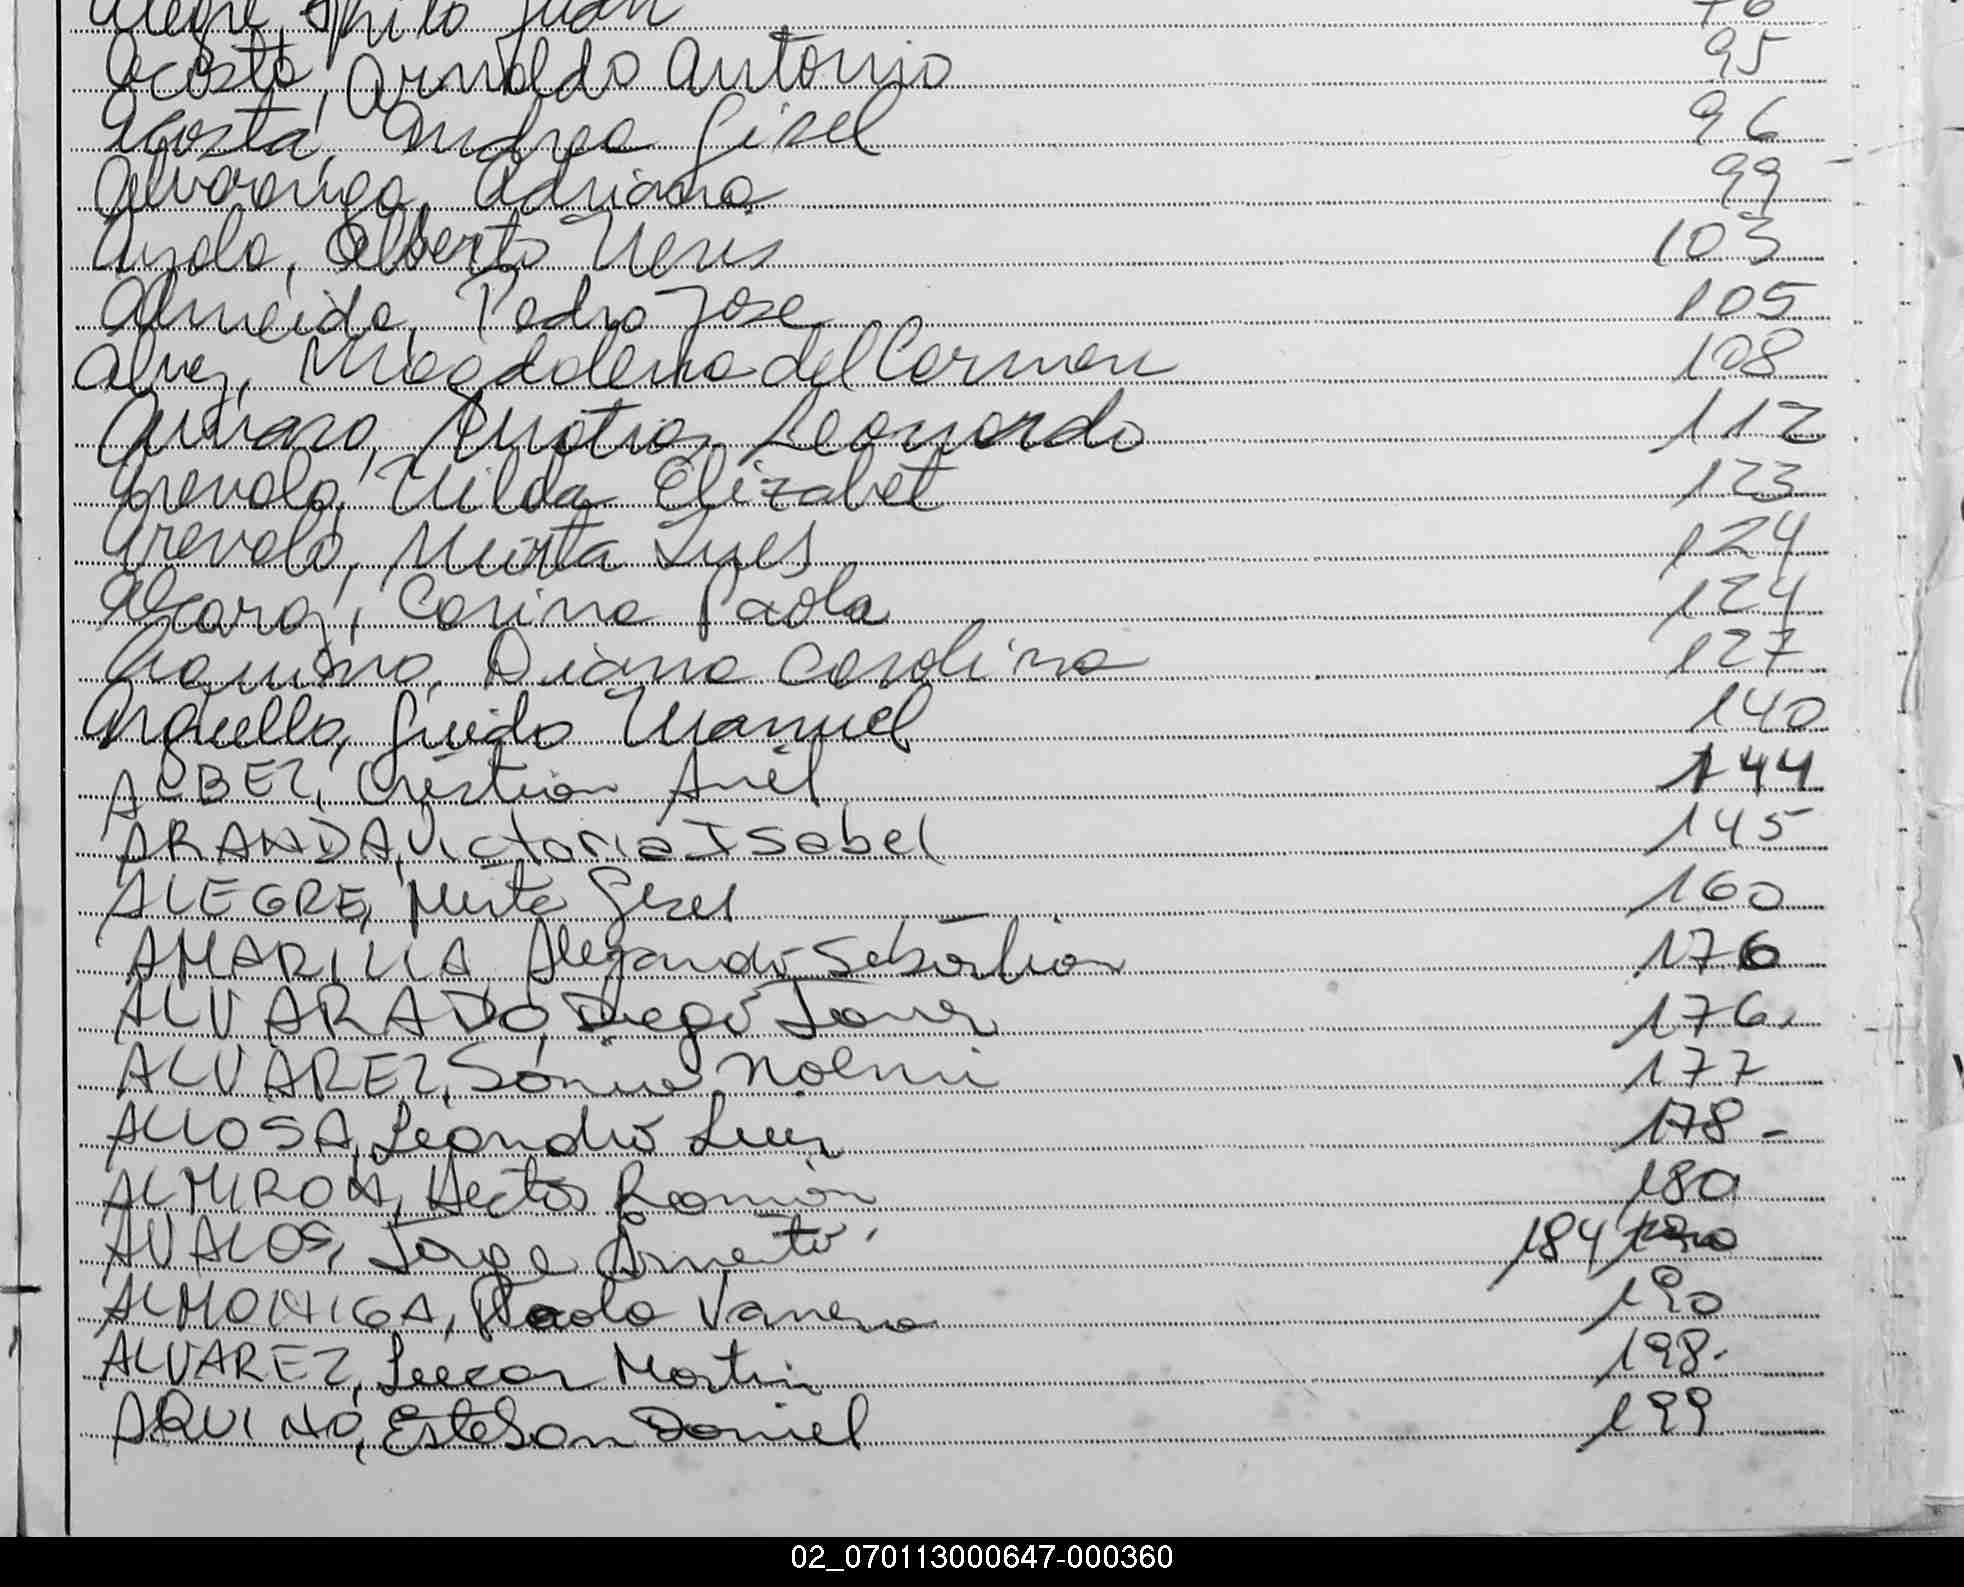 Alegre, Juan 76
Acosta, Arnaldo Antonio 95
Acosta, Andrea Gisel 96
Alvarenga, Adriana 99
Ayala, Alberto Neris 103
Almeida, Pedro Jose 105
Alvez, Magdalena del Carmen 108
Matias Leonardo 112
Arevalo, Nilda Elizabet 123
Arevalo, Mirta Ines 124
Alcaraz, Corina Paola 124
Aquino, Diana Carolina 127
Arguello, Guido Manuel 140
ALBEZ, Cristian Ariel 144
ARANDA, Victoria Isabel 145
ALEGRE, Mirta Gisel 160
AMARILLA Alejandro Sebastian 176
ALVARADO, Diego Javier 176.
ALVAREZ, Sonia Noemi 177
ALLOSA, Leandro Luis 178 -
ALMIRON, Hector Ramon 180
AVALOS, Jorge Armando 184
ALMONIGA, Paola Vanesa 190
ALVAREZ, Lucas Martin 198.
AQUINO, Esteban Daniel 199
02_070113000647-000360